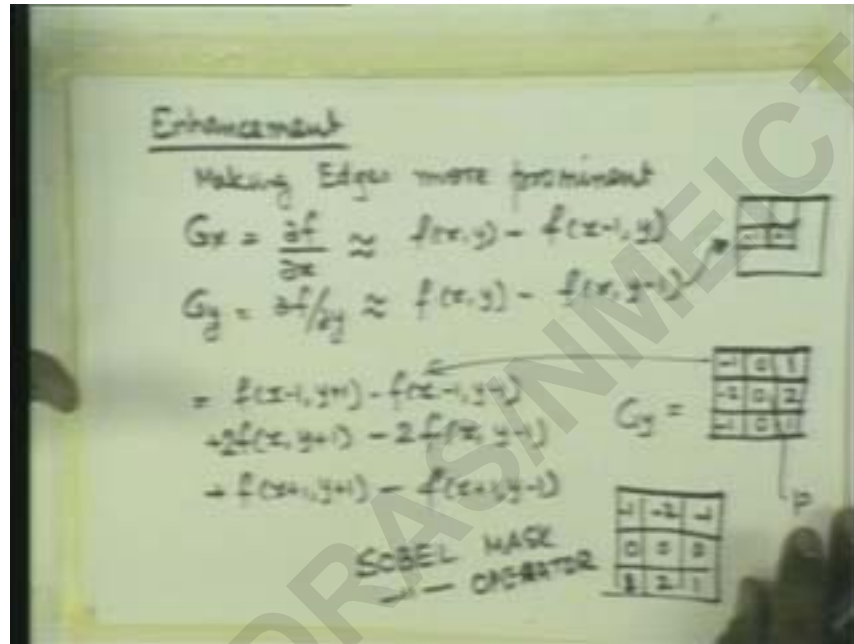 Enhancement
Making Edges more prominent
Gx = ∂f/∂x ≈ f(x,y) - f(x-1,y)
Gy = ∂f/∂y ≈ f(x,y) - f(x,y-1)
= f(x-1,y+1) - f(x-1,y-1)
+2f(x,y+1) - 2f(x,y-1)
+ f(x+1,y+1) - f(x+1,y-1)
Gy =
-1 0 1
-2 0 2
-1 0 1
P
-1 -2 -1
0 0 0
1 2 1
SOBEL MASK
—"— OPERATOR
RAS/NMEICT